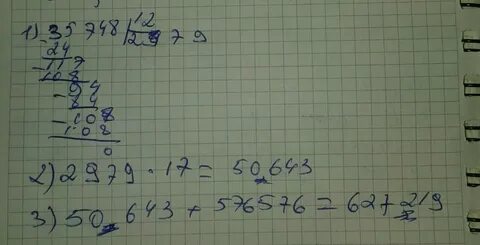 1) 35748 | 12
24 2979
117
108
94
84
108
108
0
2) 2979 · 17 = 50.643
3) 50.643 + 576576 = 627219